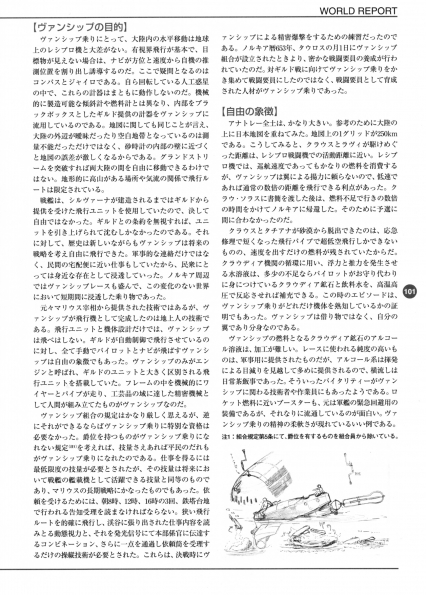 WORLD REPORT
【ヴァンシップの目的】
ヴァンシップ乗りにとって、大陸内の水平移動は地球
上のレシプロ機と大差がない。有視界飛行が基本で、目
標物が見えない場合は、ナビが方位と速度から自機の推
測位置を割り出し誘導するのだ。ここで疑問となるのは
コンパスとジャイロである。自ら回転している人工惑星
の中で、これらの計器はまともに動作しないのだ。機械
的に製造可能な傾斜計や燃料計とは異なり、内部をブラ
ックボックスとしたギルド提供の計器をヴァンシップに
流用しているのである。地図に関しても同じことが言え、
大陸の外辺が曖昧だったり空白地帯となっているのは測
量不能だっただけではなく、砂時計の内部の壁に近づく
と地図の誤差が激しくなるからである。グランドストリ
ームを突破すれば両大陸の間を自由に移動できるわけで
はない。地形的に高山がある場所や気流の関係で飛行ル
ートは限定されている。
戦艦は、シルヴァーナが建造されるまではギルドから
提供を受けた飛行ユニットを使用していたので、決して
自由ではなかった。ギルドとの条約を無視すれば、ユニ
ットを引き上げられて沈むしかなかったのである。それ
に対して、歴史は新しいながらもヴァンシップは将来の
戦略を考え自由に飛行できた。軍事的な連絡だけではな
く、民間の宅配便に近い仕事もしていたから、民衆にと
っては身近な存在として浸透していった。ノルキア周辺
ではヴァンシップレースも盛んで、この変化のない世界
において短期間に浸透した乗り物であった。
元々マリウス宰相から提供された技術ではあるが、ヴ
ァンシップが飛行機として完成したのは地上人の技術で
ある。飛行ユニットと機体設計だけでは、ヴァンシップ
は飛べはしない。ギルドが自動制御で飛行させているの
に対し、全て手動でパイロットとナビが飛ばすヴァンシ
ップは自由の象徴でもあった。ヴァンシップのみがエン
ジンと呼ばれ、ギルドのユニットと大きく区別される飛
行ユニットを搭載していた。フレームの中を機械的にワ
イヤーとパイプが走り、工芸品の域に達した精密機械と
して人間が組み立てたものがヴァンシップなのだ。
ヴァンシップ組合の規定はかなり厳しく思えるが、逆
にそれができるならばヴァンシップ乗りに特別な資格は
必要なかった。爵位を持つものがヴァンシップ乗りになれ
ない規定注1を考えれば、技量さえあれば平民のだれも
がヴァンシップ乗りになれたのである。仕事を得るには
最低限度の技量が必要とされたが、その技量は将来にお
いて戦艦の艦載機として活躍できる技量と同等のもので
あり、マリウスの長期戦略にかなったものでもあった。依
頼を受けるためには、朝8時、12時、16時の3回、鉄塔台地
で行われる告知受理を読まなければならない。狭い飛行
ルートを的確に飛行し、渓谷に張り出された仕事内容を読
みとる動態視力と、それを発光信号にて本部係官に伝達す
るコンビネーション、さらに一点を通過し依頼筒を受理す
るだけの操縦技術が必要とされた。これらは、決戦時にヴ
ァンシップによる精密爆撃をするための練習だったので
ある。ノルキア暦653年、タウロスの月1日にヴァンシップ
組合が設立されたときより、密かに戦闘要員の養成が行わ
れていたのだ。対ギルド戦に向けてヴァンシップ乗りをか
き集めて戦闘要員にしたのではなく、戦闘要員として育成
された人材がヴァンシップ乗りであった。
【自由の象徴】
アナトレー全土は、かなり大きい。参考のために大陸の
上に日本地図を重ねてみた。地図上の1グリッドが250km
である。こうしてみると、クラウスとラヴィが駆けめぐ
った距離は、レシプロ戦闘機での活動距離に近い。レシプ
ロ機では、巡航速度であってもかなりの燃料を消費する
が、ヴァンシップは翼による揚力に頼らないので、低速で
あれば通常の数倍の距離を飛行できる利点があった。ク
ラウ・ソラスに書簡を渡した後は、燃料不足で行きの数倍
の時間をかけてノルキアに帰還した。そのために予選に
間に合わなかったのだ。
クラウスとタチアナが砂漠から脱出できたのは、応急
修理で短くなった飛行パイプで超低空飛行しかできない
ものの、速度を出すだけの燃料が残されていたからだ。
クラウディア機関の循環に用い、浮力と推力を発生させ
る水溶液は、多少の不足ならパイロットがお守り代わり
に身につけているクラウディア鉱石と飲料水を、高温高
圧で反応させれば補充できる。この時のエピソードは、
ヴァンシップ乗りがどれだけ機体を熟知しているかの証
明でもあった。ヴァンシップは借り物ではなく、自分の
翼であり分身なのである。
ヴァンシップの燃料となるクラウディア鉱石のアルコー
ル溶液は、加工が難しい。レースに使われる純度の高いも
のは、軍事用に提供されたものだが、アルコール系は揮発
による目減りを見越して多めに提供されるので、横流しは
日常茶飯事であった。そういったバイタリティーがヴァン
シップに関わる技術者や作業員にもあったようである。ロ
ケット燃料に近いブースターも、元は軍艦の緊急回避用の
装備であるが、それなりに流通しているのが面白い。ヴァ
ンシップ乗りの精神の柔軟さが現れているいい例である。
注1：組合規定第5条にて、爵位を有するものを組合員から除いている。
101